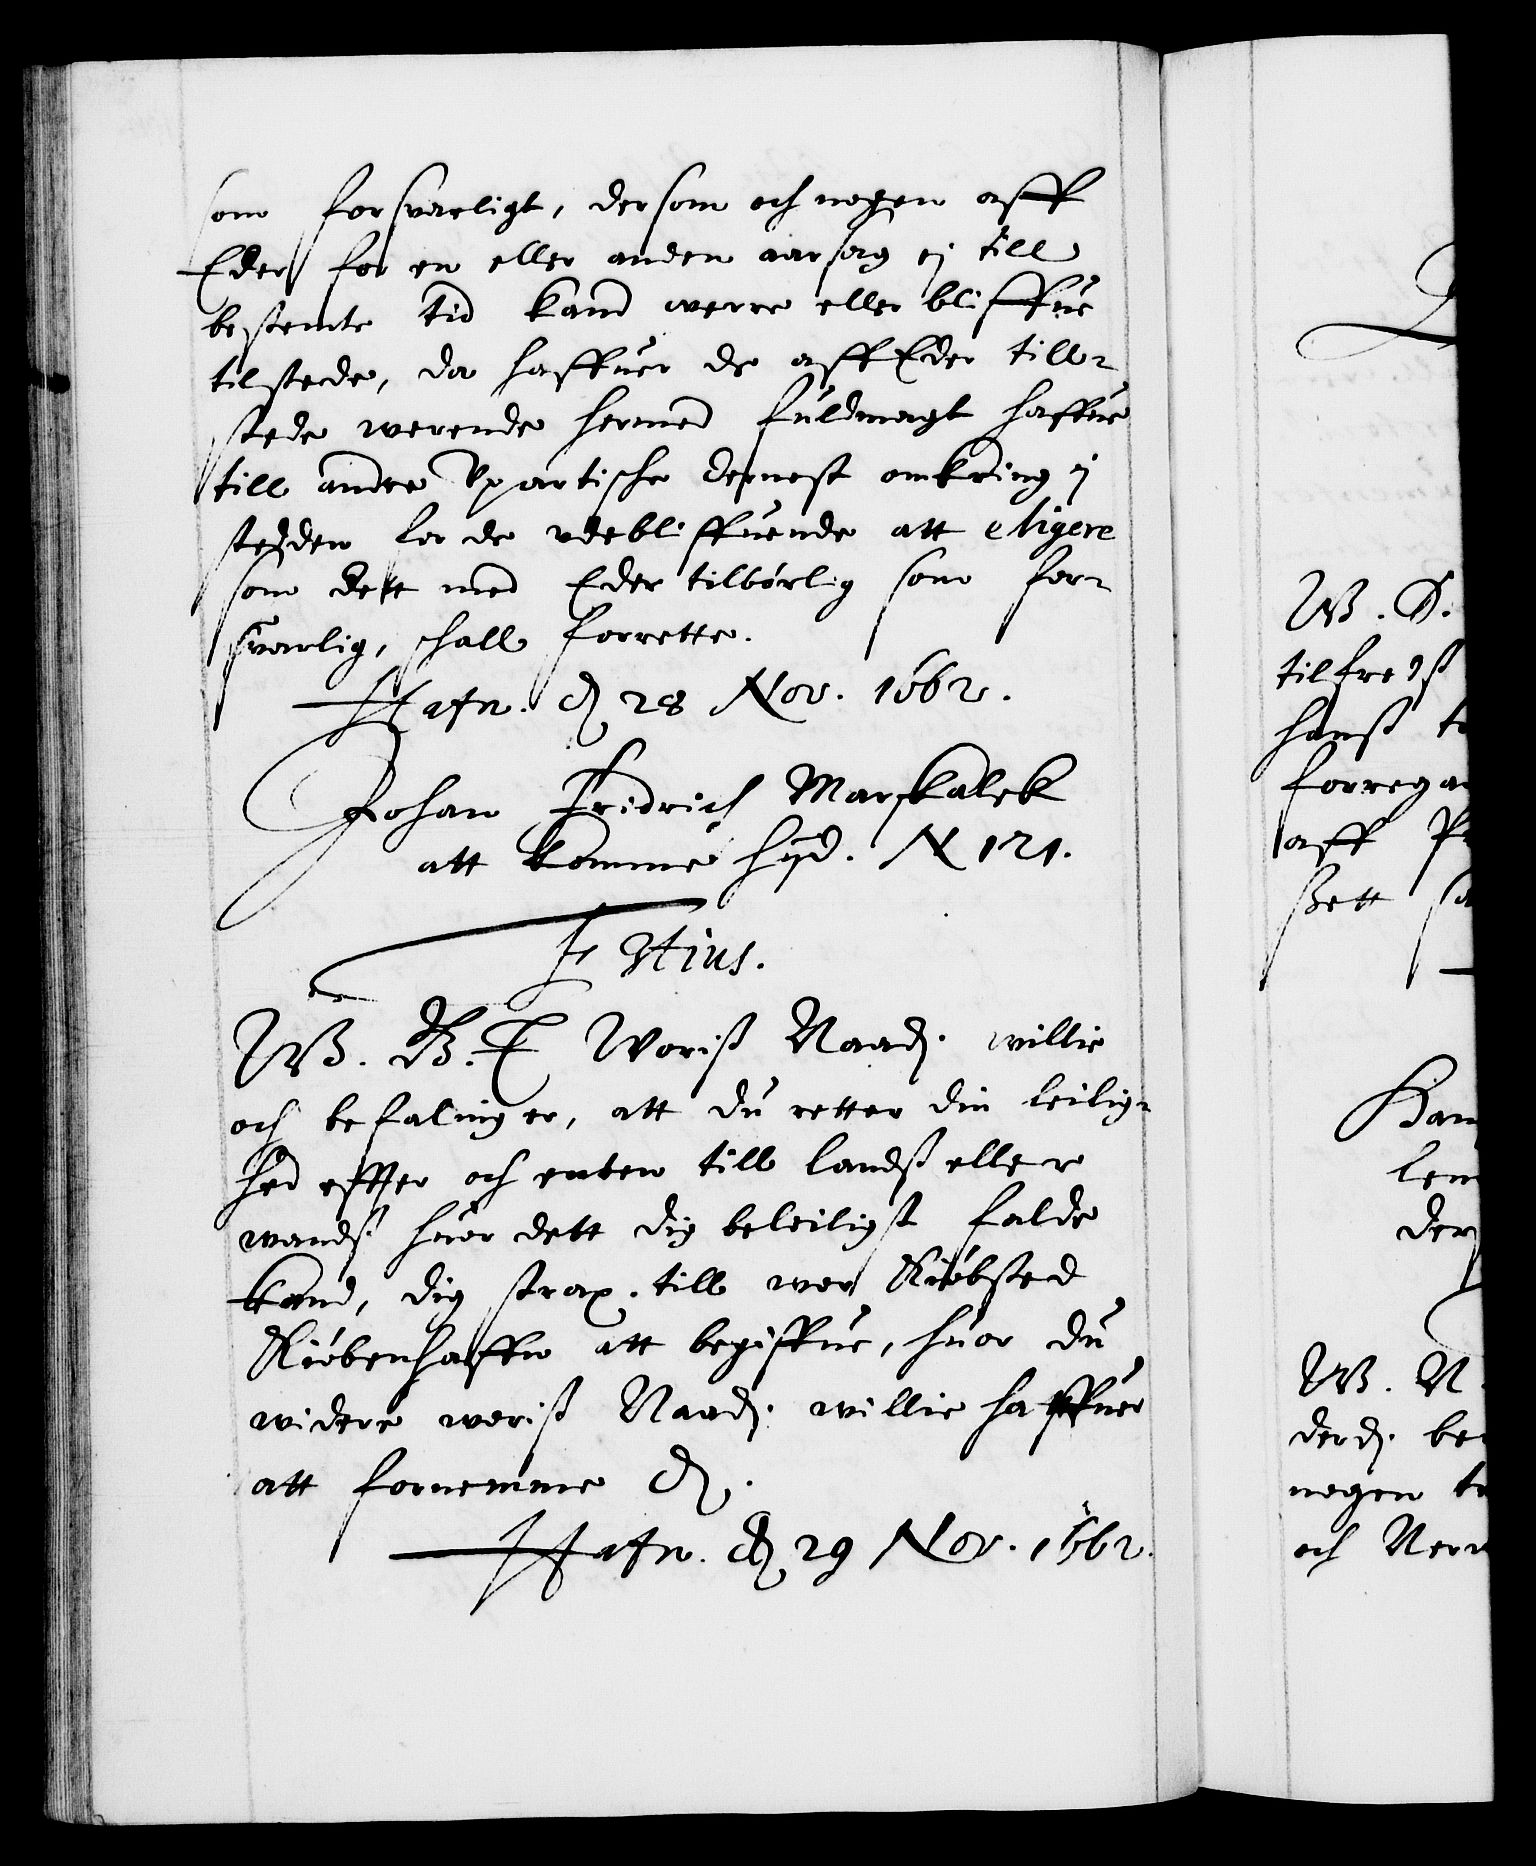 som forsvarligt, dersom och nogen aff
Eder for en eller anden aarsag ej till
bestemte tid kand werre eller bliffue
tilstede, da haffuer de aff Eder till-
stede werende hermed fuldmagt haffue
till andre Vpartische dernest omkring i
steden for de udebliffuende att eligere
som dett med Eder tilbørlig som for-
svarlig, schall forrette.
Hafn. d 28 Nov. 1662.
Johan Fridrich Marskalck
att komme hid. N 121.
F 3tius.
W. G. T. Woriß Naadß willie
och befaling er, att du retter din leilig-
hed effter och enten till landß eller
wandß huor dett dig beleiligst falde
kand, dig strax till wor Kiøbsted
Kiøbenhaffn att begiffue, huor du
widere woriß Naadß willie haffuer
att fornemme D.
Hafn. d 29 Nov. 1662.
W. G.
tilfredß
hanß
forrega
aff
ßett
Ham
len
der
W. N.
derß be
nogen
och Nerv